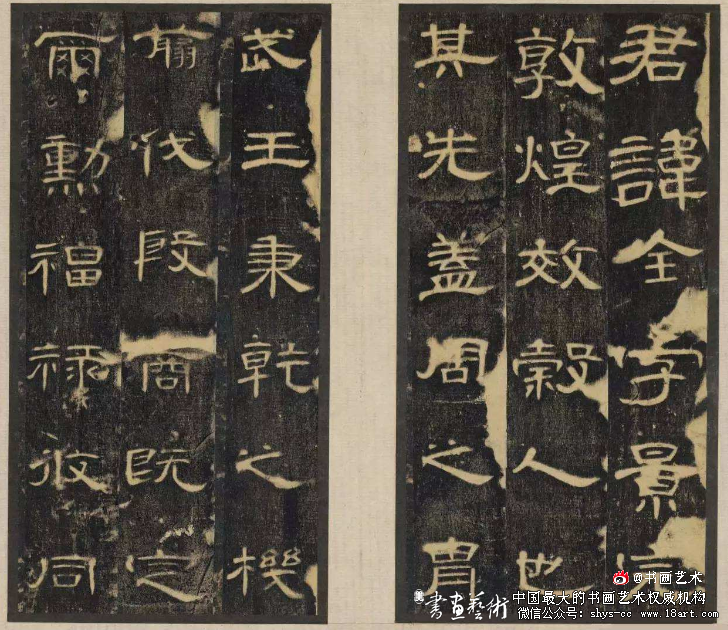 君諱全字景
敦煌效穀人也
其先蓋周之胄
武王秉乾之機
翦伐殷商既定
爾勳福祿攸同
書畫藝術
@书画艺术
中国最大的书画艺术权威机构
微信公众号：shys-cc www.18art.com